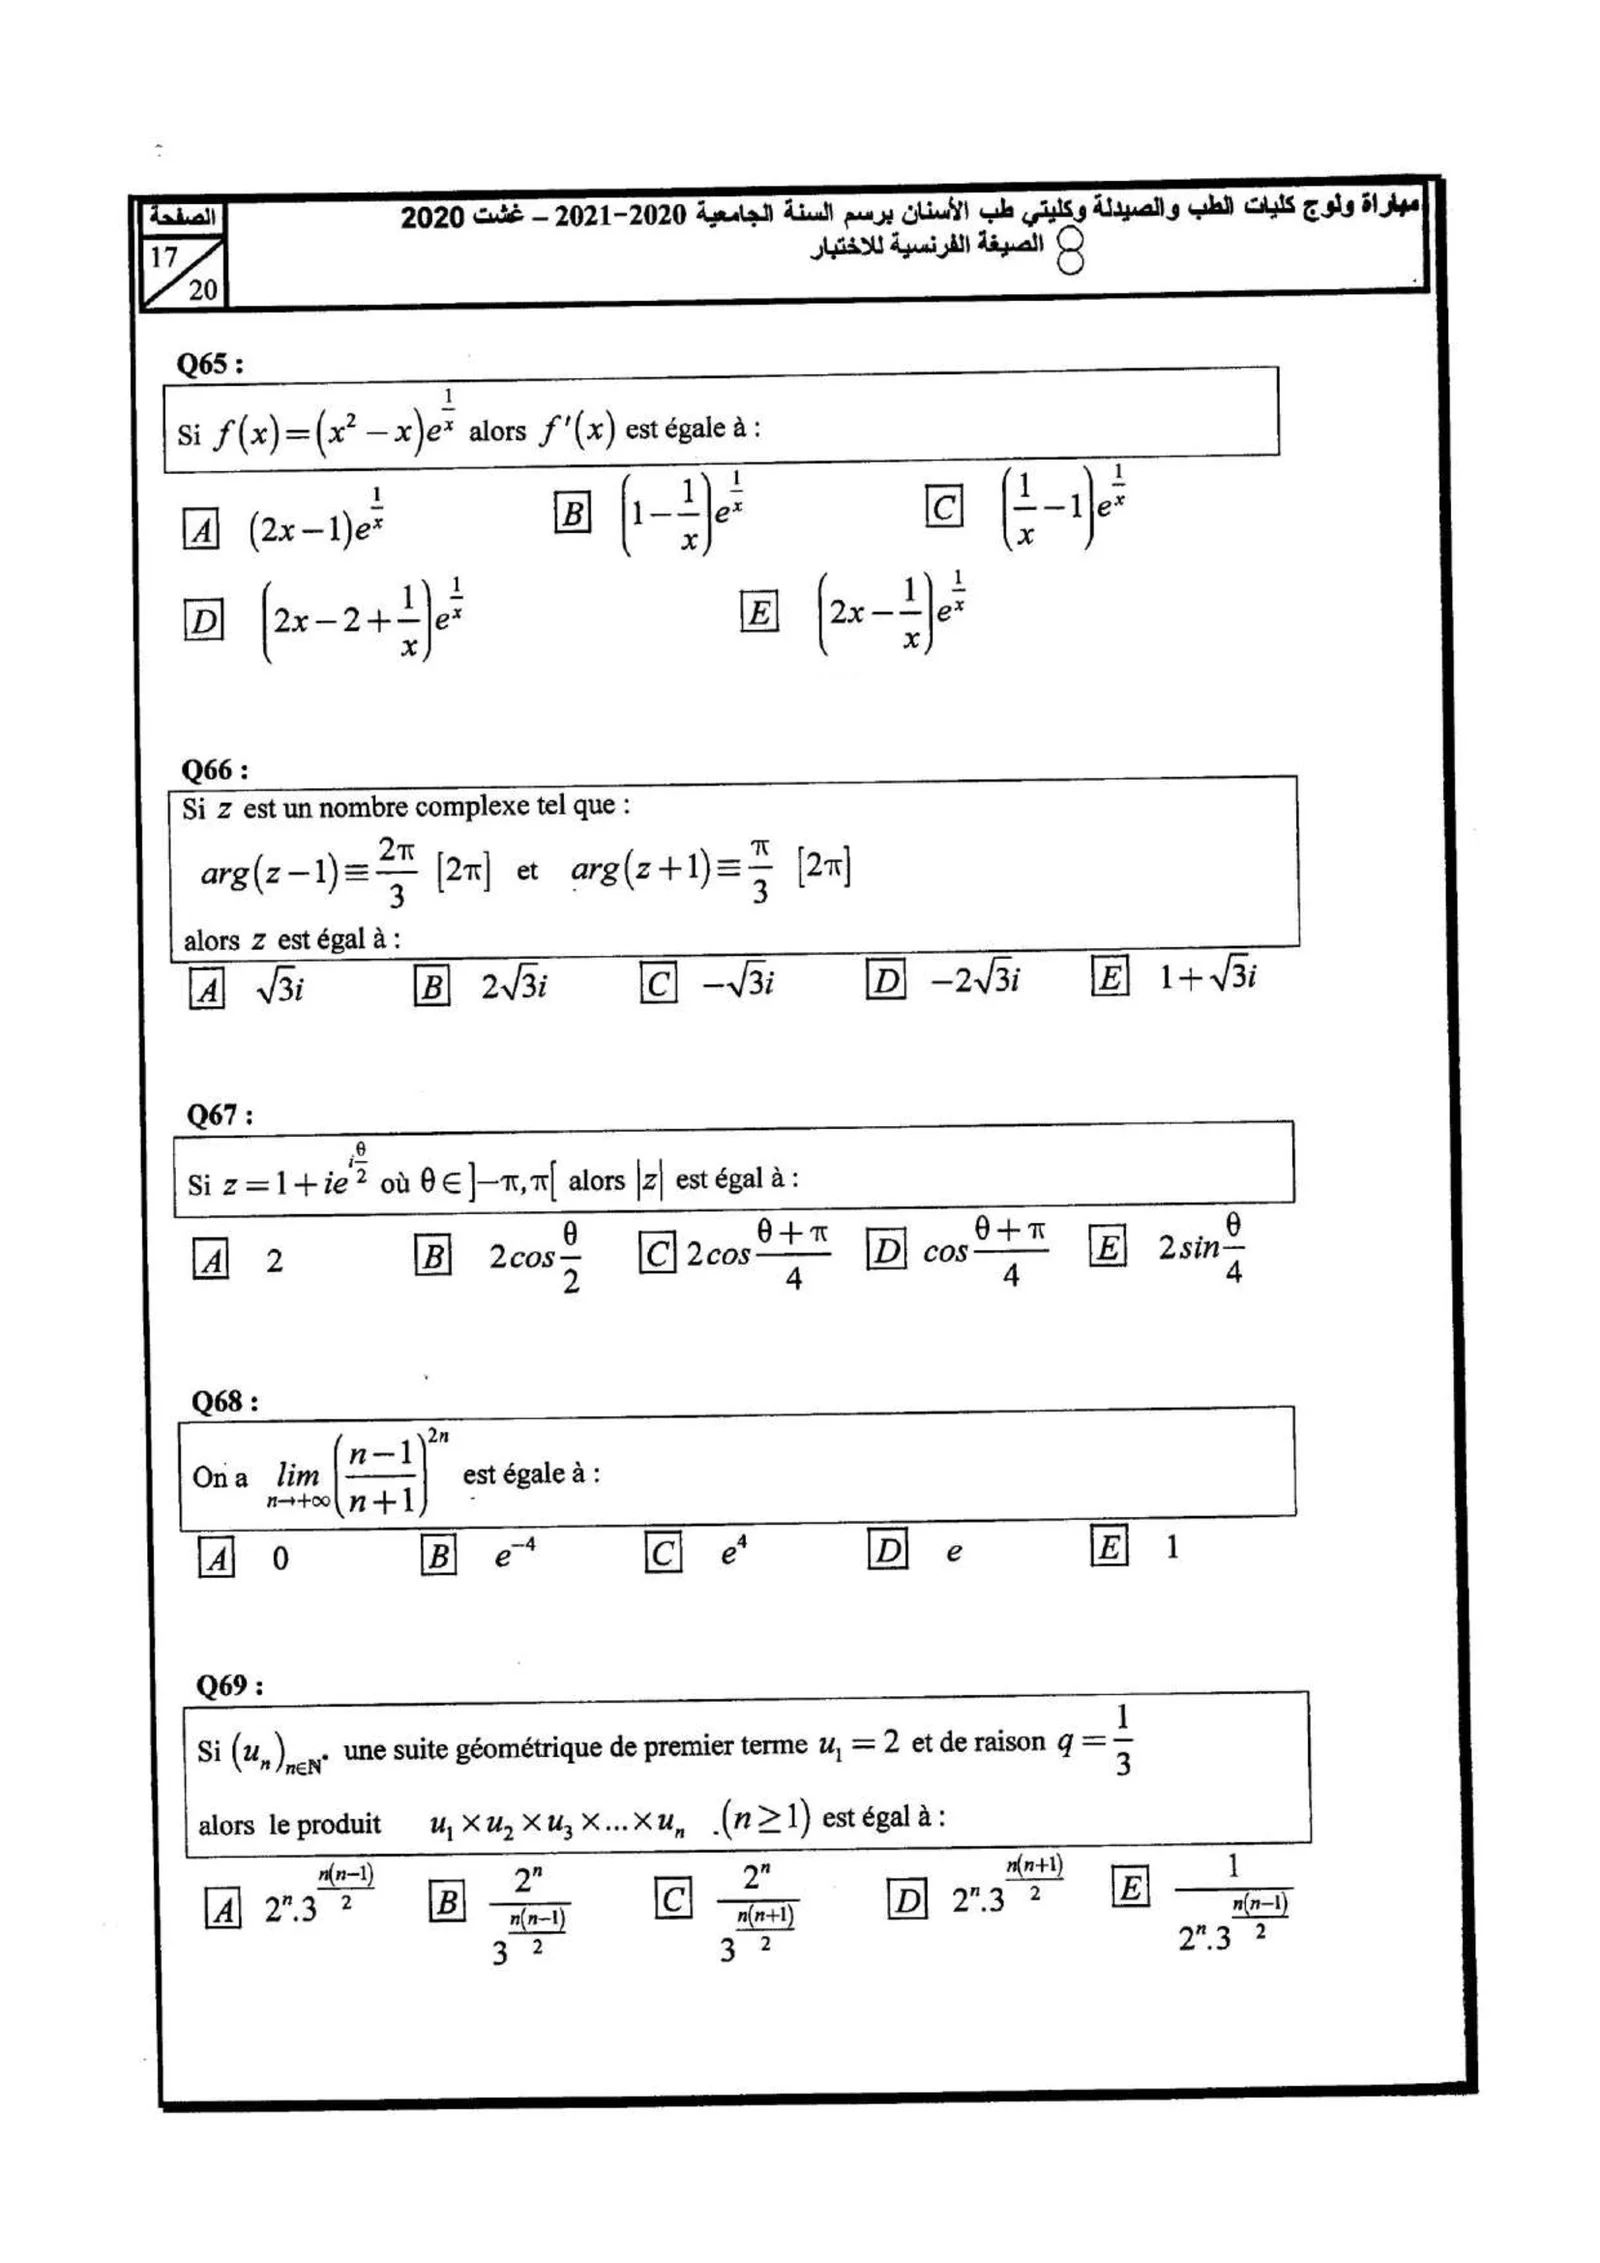 الصفحة
17
20
مباراة ولوج كليات الطب والصيدلة وكليتي طب الأسنان برسم السنة الجامعية 2020-2021 – غشت 2020
الصيغة الفرنسية للاختبار 8
Q65 :
Si f(x)=(x² − x)e^{1/x} alors f'(x) est égale à :
A (2x−1)e^{1/x} B (1−1/x)e^{1/x} C (1/x−1)e^{1/x}
D (2x−2+1/x)e^{1/x} E (2x−1/x)e^{1/x}
Q66 :
Si z est un nombre complexe tel que :
arg(z−1)≡2π/3 [2π] et arg(z+1)≡π/3 [2π]
alors z est égal à :
A √3i B 2√3i C −√3i D −2√3i E 1+√3i
Q67 :
Si z=1+ie^{iθ/2} où θ∈]−π,π[ alors |z| est égal à :
A 2 B 2cos θ/2 C 2cos (θ+π)/4 D cos (θ+π)/4 E 2sin θ/4
Q68 :
On a lim n→+∞ ((n−1)/(n+1))^{2n} est égale à :
A 0 B e^{−4} C e^{4} D e E 1
Q69 :
Si (u_n)_{n∈ℕ*} une suite géométrique de premier terme u₁ = 2 et de raison q = 1/3
alors le produit u₁×u₂×u₃×...×u_n .(n≥1) est égal à :
A 2^n.3^{n(n−1)/2} B 2^n/3^{n(n−1)/2} C 2^n/3^{n(n+1)/2} D 2^n.3^{n(n+1)/2} E 1/(2^n.3^{n(n−1)/2})